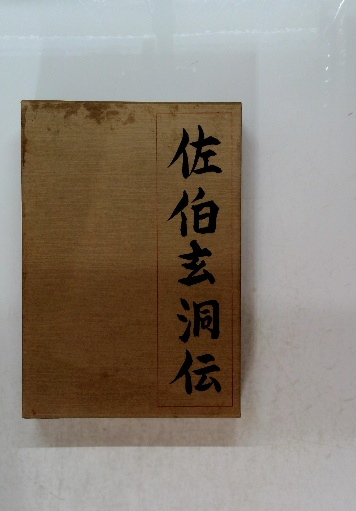 佐伯玄洞伝